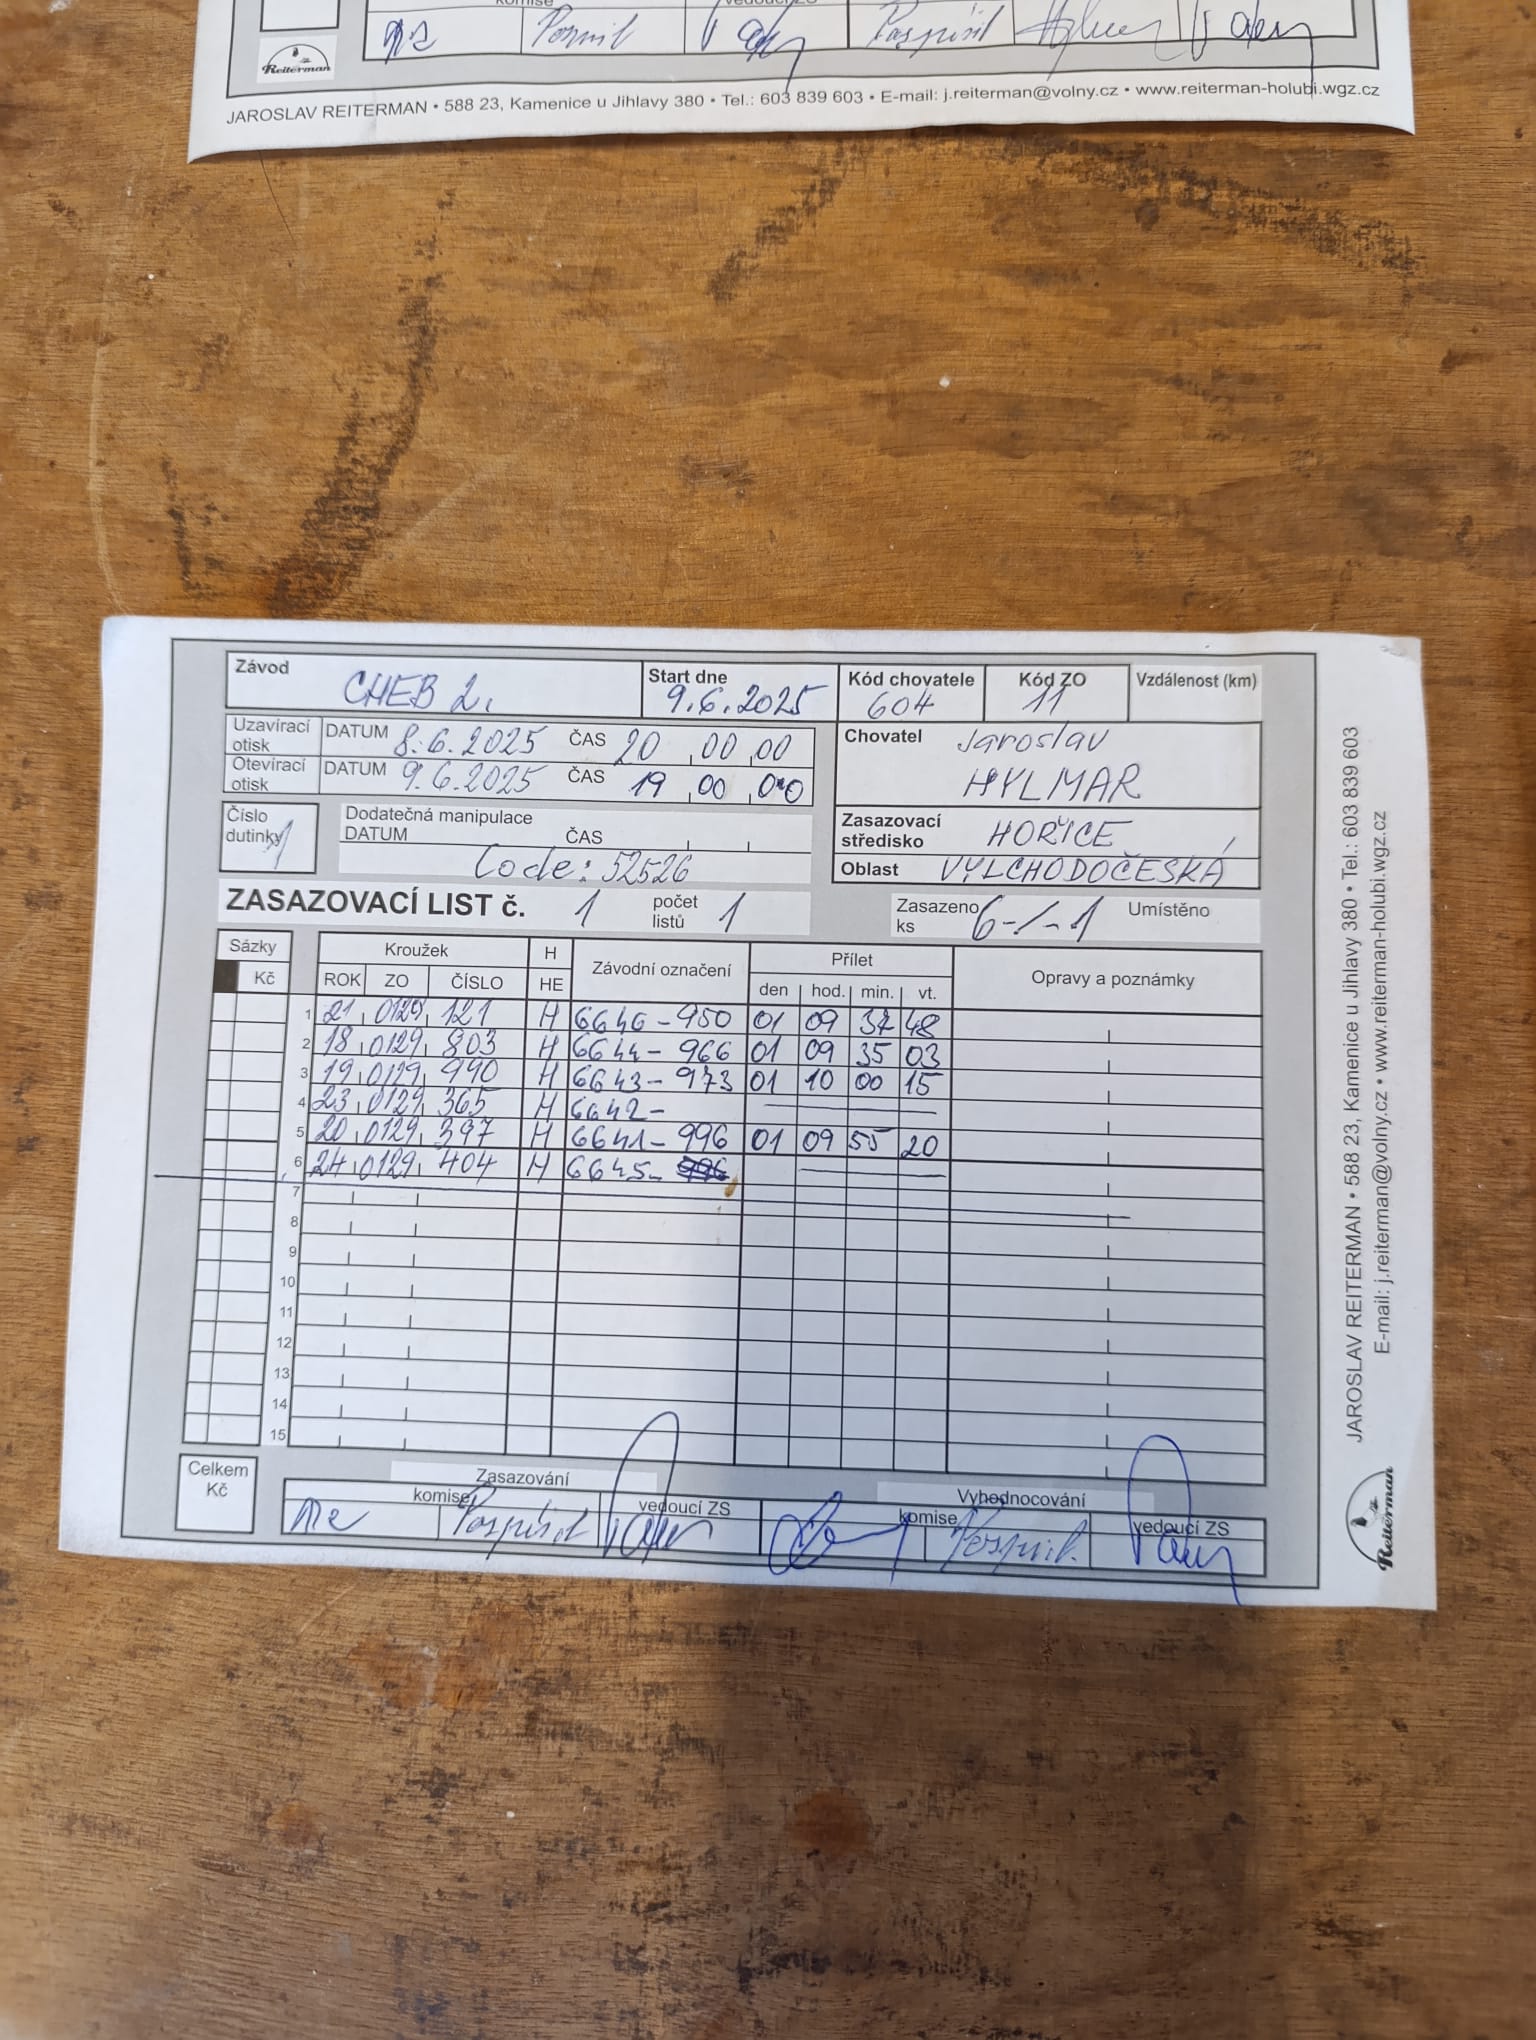 komise
vedoucí ZS
Reiterman
JAROSLAV REITERMAN • 588 23, Kamenice u Jihlavy 380 • Tel.: 603 839 603 • E-mail: j.reiterman@volny.cz • www.reiterman-holubi.wgz.cz
Závod CHEB 2.
Start dne 9.6.2025
Kód chovatele 604
Kód ZO 11
Vzdálenost (km)
Uzavírací otisk DATUM 8.6.2025 ČAS 20 00 00
Otevírací otisk DATUM 9.6.2025 ČAS 19 00 00
Chovatel Jaroslav
HYLMAR
Číslo dutinky 1
Dodatečná manipulace
DATUM ČAS
Code: 52526
Zasazovací středisko HOŘICE
Oblast VÝLCHODOČESKÁ
ZASAZOVACÍ LIST č. 1 počet listů 1
Zasazeno ks 6-/-1 Umístěno
Sázky Kroužek H Závodní označení Přílet Opravy a poznámky
Kč ROK ZO ČÍSLO HE den hod. min. vt.
1 21 0129 121 H 6646-950 01 09 37 48
2 18 0129 803 H 6644-966 01 09 35 03
3 19 0129 990 H 6643-973 01 10 00 15
4 23 0129 365 H 6642-
5 20 0129 397 H 6641-996 01 09 55 20
6 24 0129 404 H 6645- 996
7
8
9
10
11
12
13
14
15
Celkem Kč
Zasazování Vyhodnocování
komise Pospíšil vedoucí ZS komise Pospíšil vedoucí ZS
JAROSLAV REITERMAN • 588 23, Kamenice u Jihlavy 380 • Tel.: 603 839 603
E-mail: j.reiterman@volny.cz • www.reiterman-holubi.wgz.cz
Reiterman